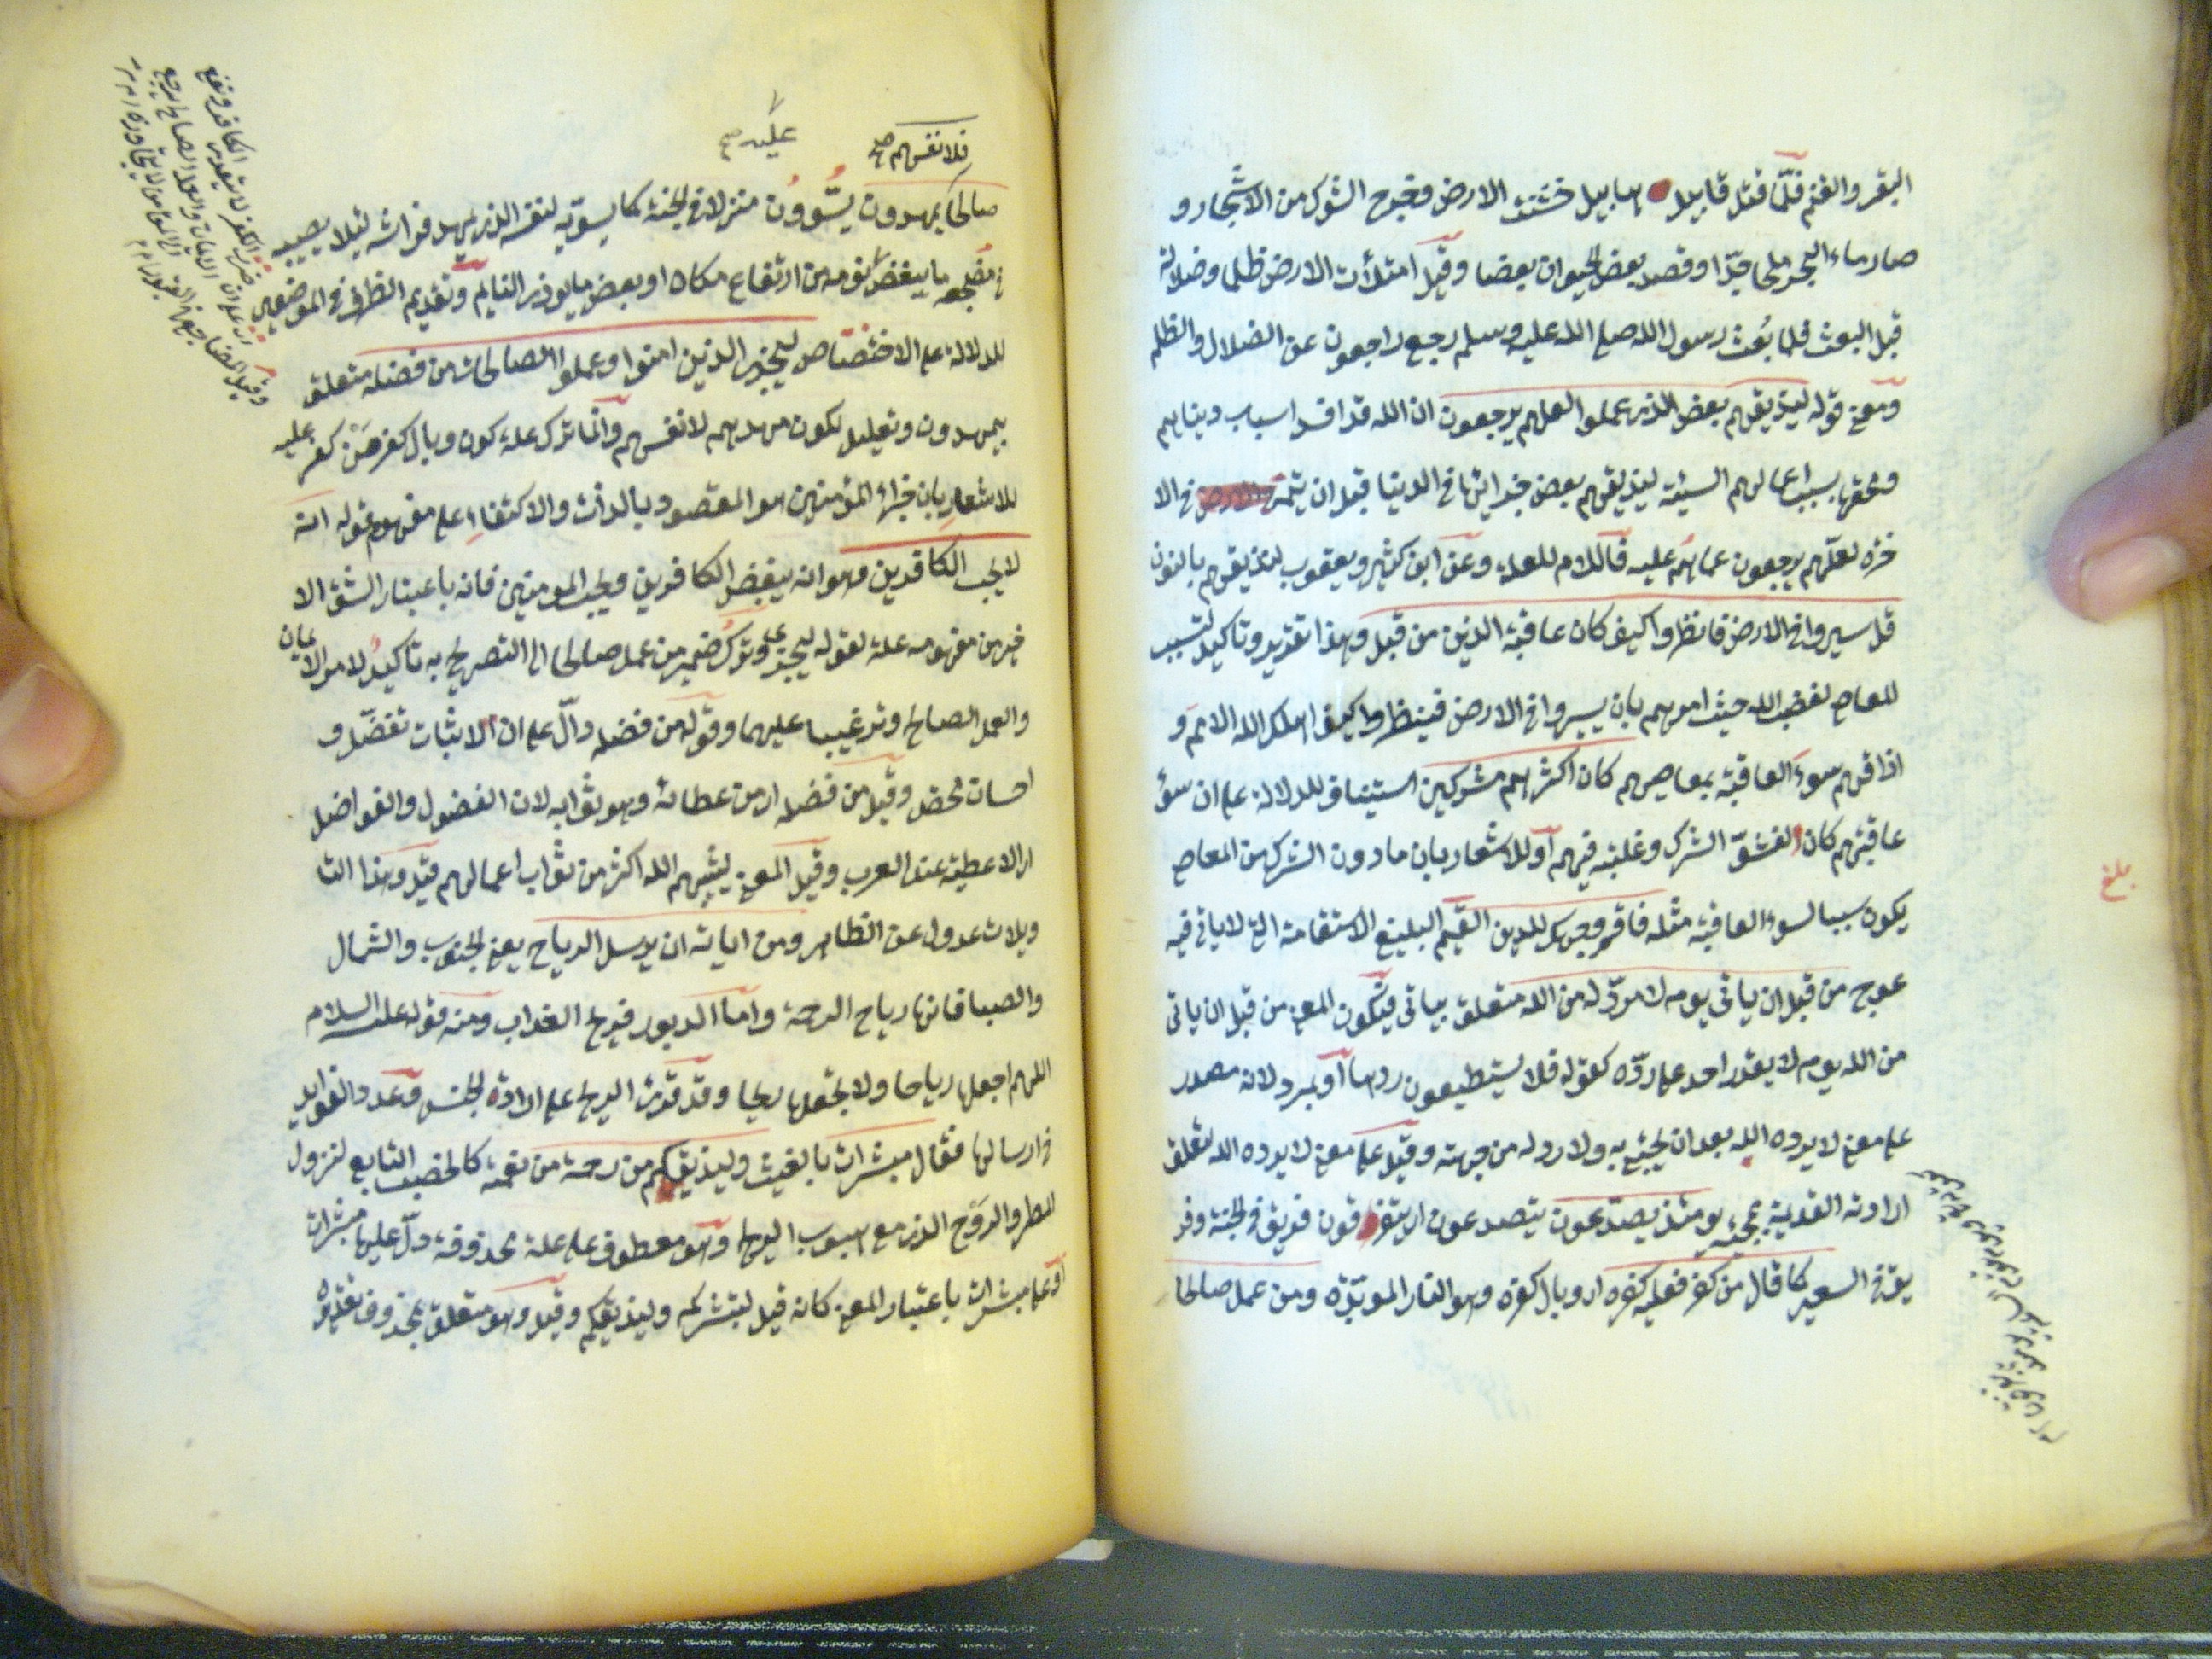 البقر والغنم فلمّا قتل قابيل هابيل خشنت الارض وخرج الشوك من الاشجار و
صار ماء البحر ملحا جدّا وقصد بعض الحيوان بعضا وقيل امتلأت الارض ظلما وضلالة
قبل البعث فلما بُعث رسول الله صلى الله عليه وسلم رجع راجعون عن الضلال والظلم
ومعنى قوله ليذيقهم بعض الذي عملوا لعلهم يرجعون ان الله قد افسد اسباب دنياهم
ومحقها بسبب اعمالهم السيئة ليذيقهم بعض جزائها في الدنيا قبل ان يتمّ في الا
خرة لعلّهم يرجعون عماهم عليه فاللام للعلة وعن ابن كثير ويعقوب لنذيقهم بالنون
قل سيروا في الارض فانظروا كيف كان عاقبة الذين من قبل وهذا تقرير وتاكيد لتسبب
المعاصي لغضب الله حيث امرهم بان يسيروا في الارض فينظروا كيف اهلك الله الامم و
اذاقهم سوء العاقبة بمعاصيهم كان اكثرهم مشركين استيناف للدلالة على ان سوء
عاقبتهم كان لفشوّ الشرك وغلبته فيهم او للاشعار بان ما دون الشرك من المعاصي
يكون سببا لسوء العاقبة مثله فاقم وجهك للدين القيّم البليغ الاستقامة الذي لا يأتي فيه
عوج من قبل ان ياتي يوم لا مردّ له من الله متعلق بياتي فيكون المعنى من قبل ان ياتي
من الله يوم لا يقدر احد على ردّه كقوله فلا يستطيعون ردها او بمرد لانه مصدر
على معنى لا يرده الله بعد ان يجيء به ولا رد له من جهته وقيل على معنى لا يرده الله لتعلق
ارادته القديمة بمجيئه يومئذ يصدّعون يتصدعون اي يتفرقون فريق في الجنة وفر
يق في السعير كما قال من كفر فعليه كفره اي وبال كفره وهو النار المؤبّدة ومن عمل صالحا
بلغ
فلانفسهم صح
عليه صح
صالحا يمهدون يسُّوُون منزلا في الجنة كما يسوّيه لنفسه الذي يمهد فراشه لئلا يصيبه
في مضجعه ما ينغض نومه من ارتفاع مكان او بعض ما يوذي النايم وتقديم الظرف في الموضعين
للدلالة على الاختصاص ليجزي الذين امنوا وعملوا الصالحات من فضله متعلق
بيمهدون وتعليل لكون مهدهم لانفسهم وانّما ترك علة كون وبال كفر مَن كفر عليه
للاشعار بان جزاء المؤمنين هو المقصود بالذات والاكتفاء على مفهوم قوله انه
لا يحب الكافرين وهو انه يبغض الكافرين ويحب المومنين فانه باعتبار الشق الا
خير من مفهومه علة لقوله ليجزي وترك ضمير من عمل صالحا الى التصريح به تاكيدٌ لامر الايمان
والعمل الصالح وترغيبا عليهما وقوله من فضله دالّ على ان الاثبات تفضّل و
احسان محض وقيل من فضله اي من عطائه وهو ثوابه لان الفضول والفواضل
اي الاعطية عند العرب وقيل المعنى ليثيبهم الله اكثر من ثواب اعمالهم قيل وهذا التا
ويلات عدول عن الظاهر ومن اياته ان يرسل الرياح يعني الجنوب والشمال
والصبا فانها رياح الرحمة وامّا الدبور فريح العذاب ومنه قوله عليه السلام
اللهم اجعلها رياحا ولا تجعلها ريحا وقد قرئ الريح على ارادة الجنس وعدد الفوايد
في ارسالها فقال مبشرات بالغيث وليذيقكم من رحمته من نعمته كالخصب التابع لنزول
المطر والرّوح الذي مع هبوب الريح وهو معطوف على علة محذوفة دلّ عليها مبشرات
او على مبشرات باعتبار المعنى كانه قيل ليبشركم وليذيقكم وقيل وهو متعلق بمحذوف تقديره